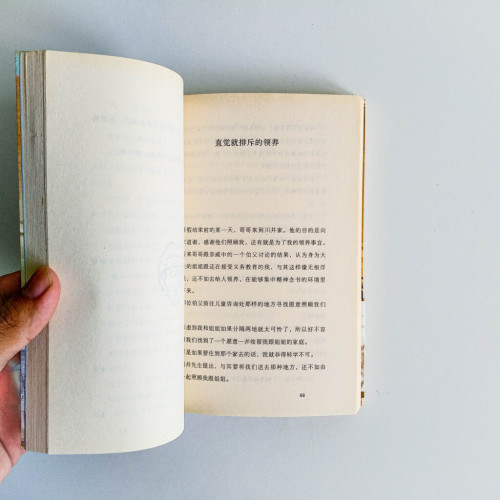 直觉就排斥的领养
假结束前的某一天，哥哥来到川井家。他的目的是向
道谢，感谢他们照顾我，还有就是为了我的领养事宜。
哥哥跟亲戚中的一个伯父讨论的结果，认为身为大
的姐姐跟还在接受义务教育的我，与其这样像无根浮
，还不如去给人领养，在能够集中精神念书的环境里
来。
位伯父前往儿童咨询处那样的地方寻找愿意照顾我们
虑到我和姐姐如果分隔两地就太可怜了，所以好不容
我们找到了一个愿意一并收留我跟姐姐的家庭。
是如果要住到那个家去的话，我就非得转学不可。
井先生提出，与其要将我们送去那种地方，还不如由
一起照顾我跟姐姐。